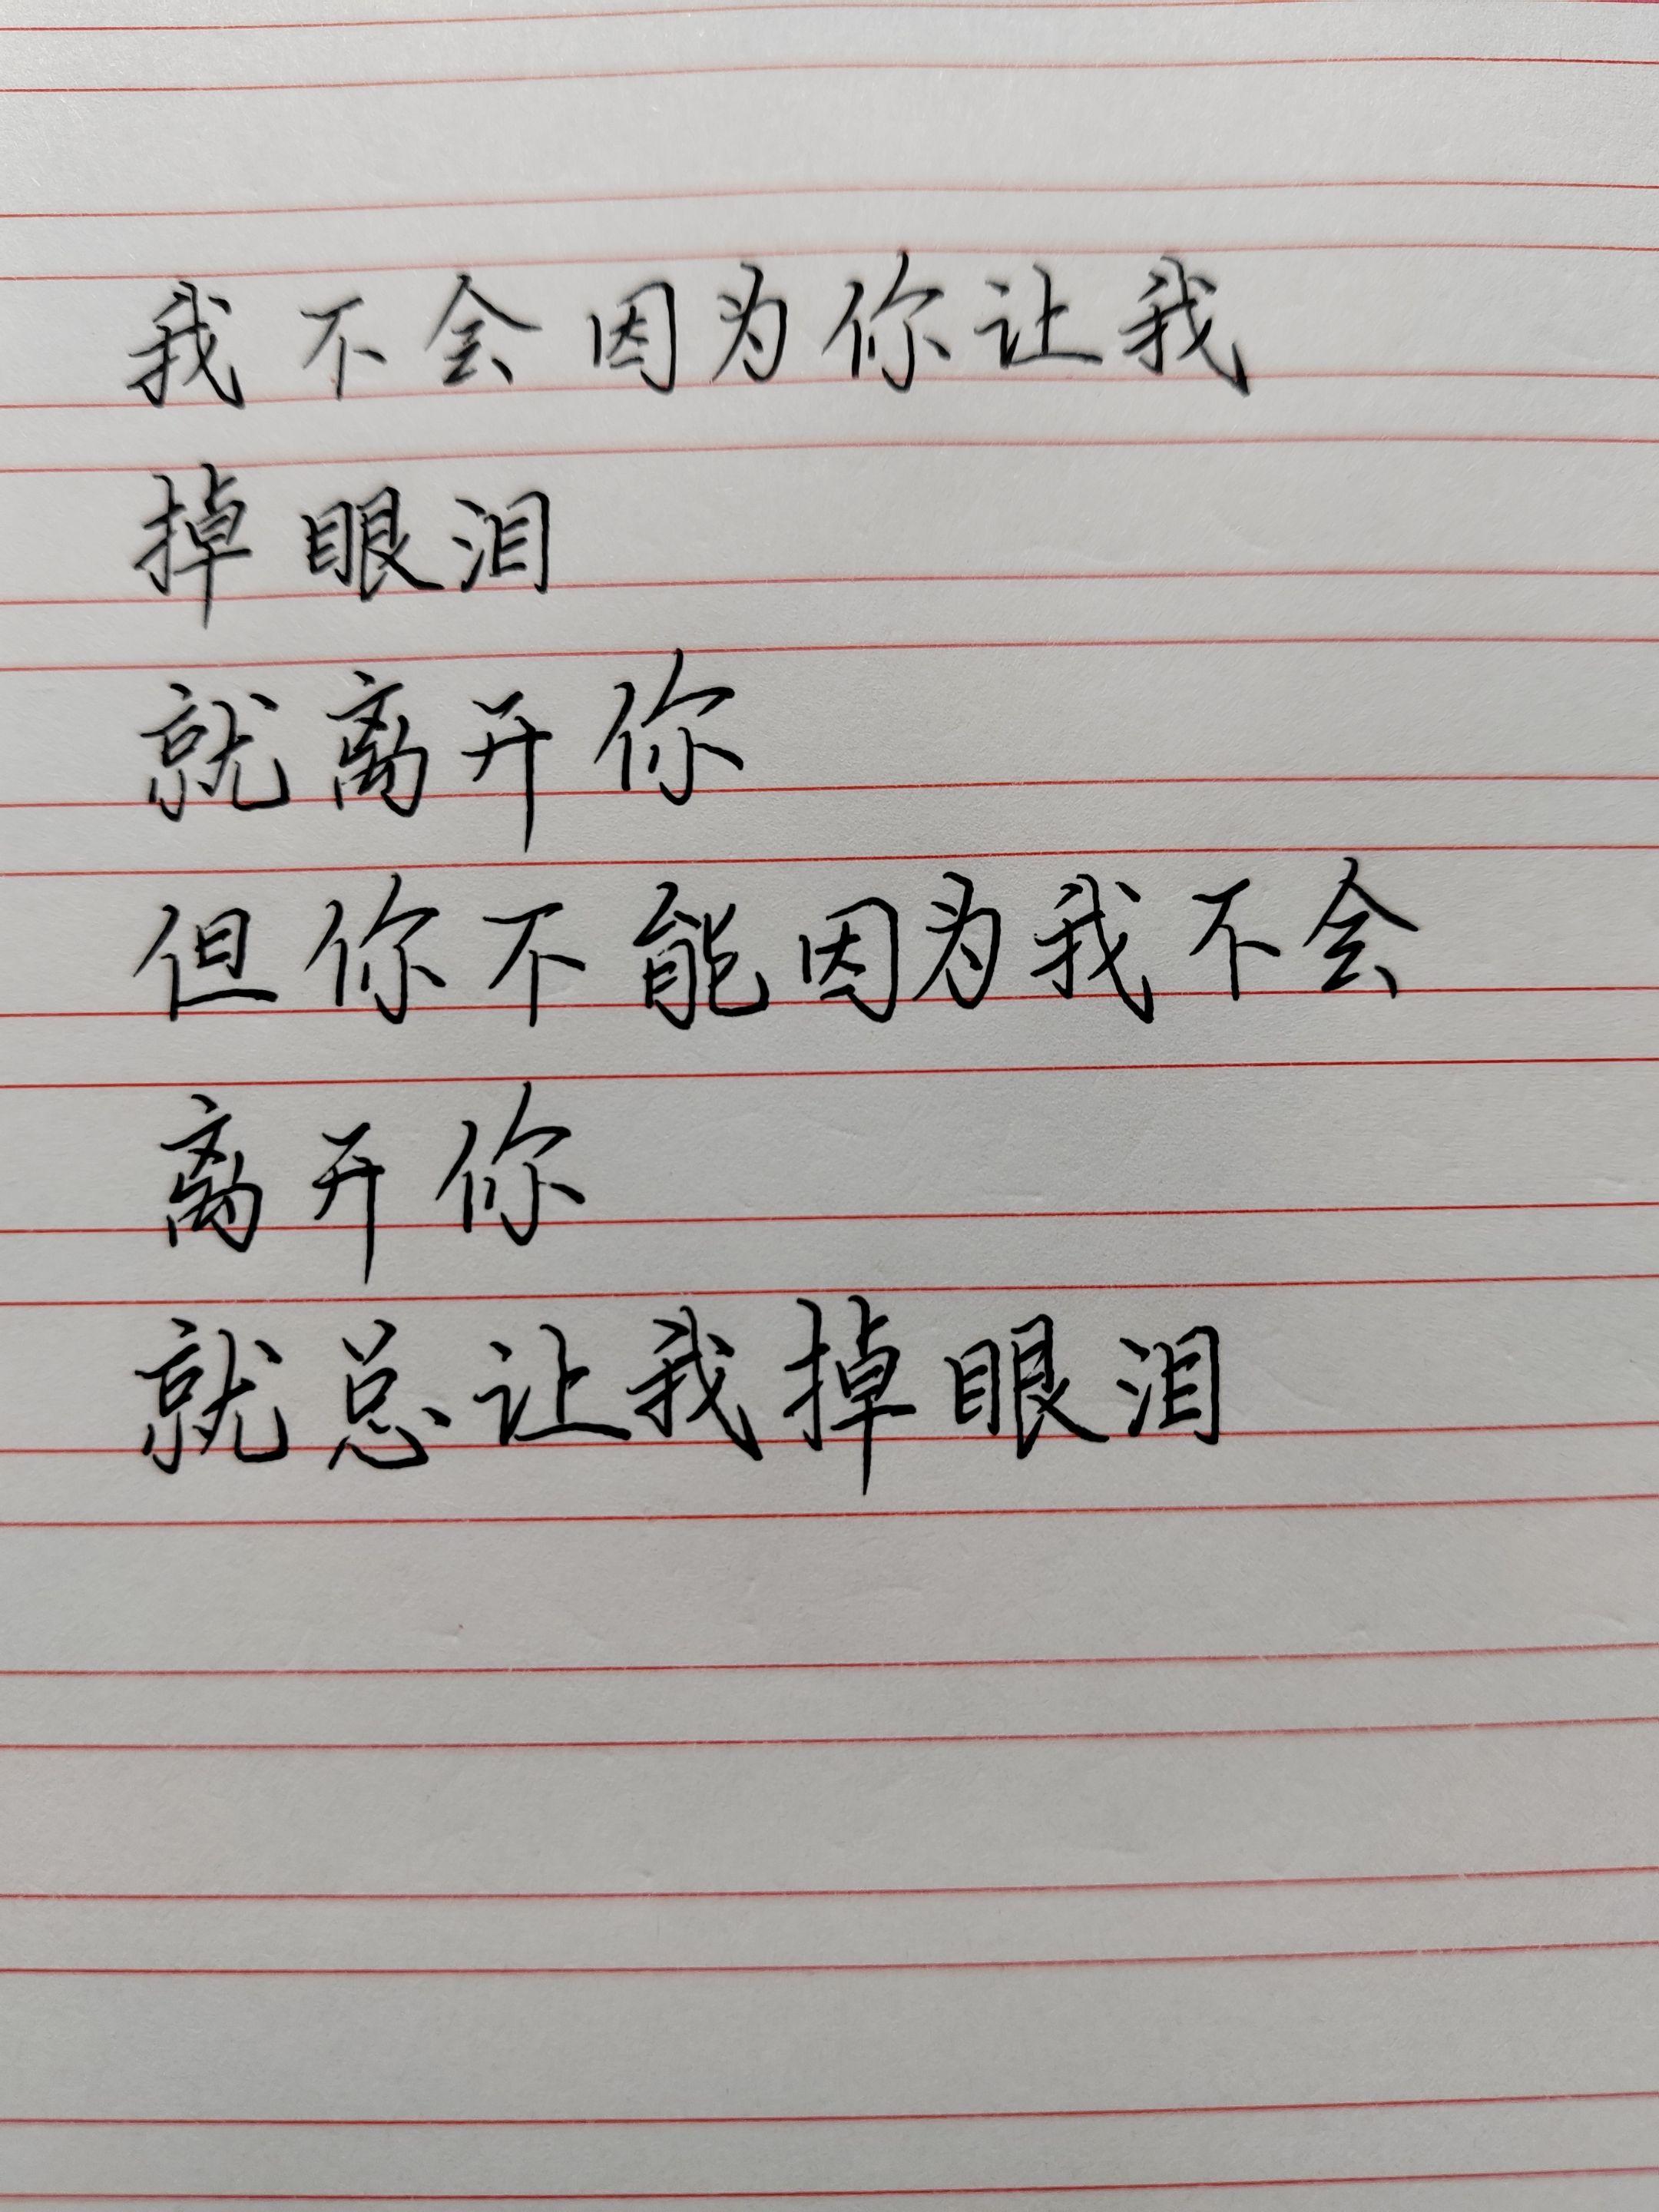 我不会因为你让我
掉眼泪
就离开你
但你不能因为我不会
离开你
就总让我掉眼泪